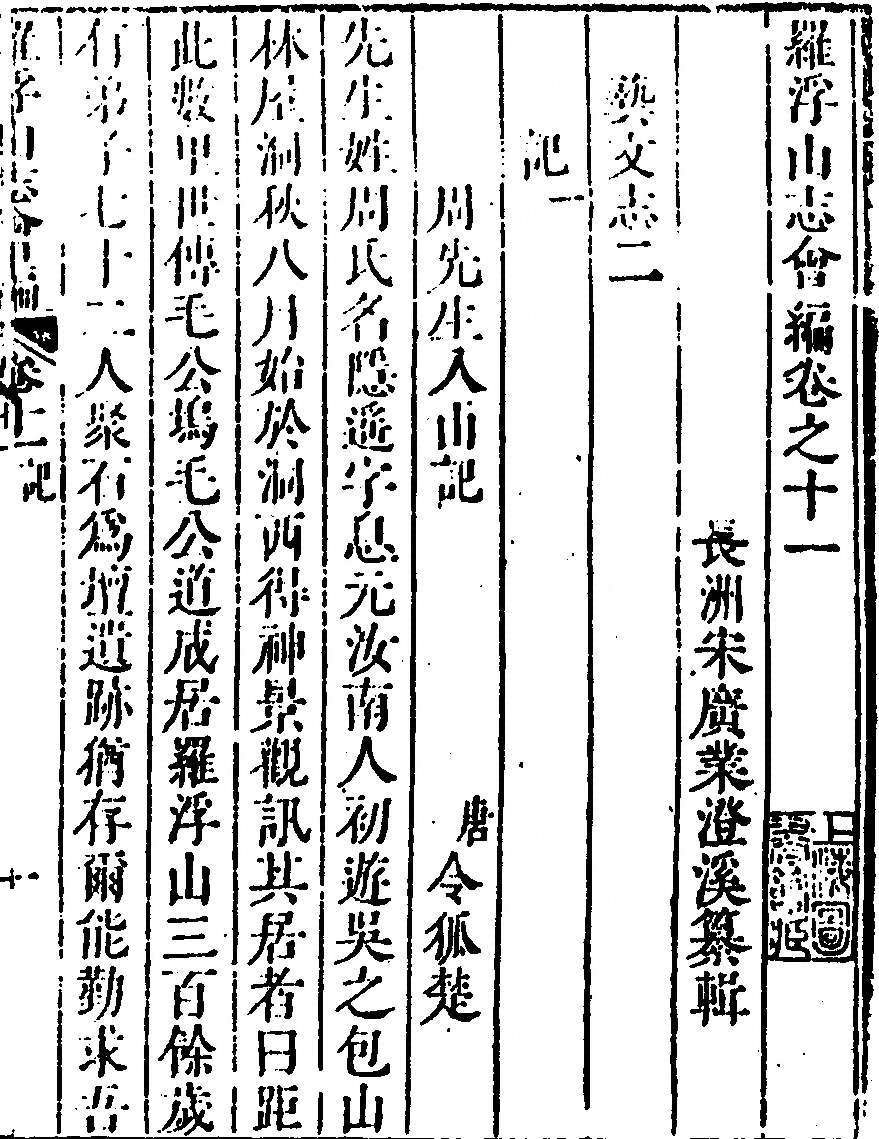 羅浮山志會編卷之十一
長洲宋廣業澄溪纂輯
藝文志二
記一
周先生入山記 唐令狐楚
先生姓周氏名隱遥字息元汝南人初遊吳之包山
林屋洞秋八月始於洞西得神景觀訊其居者曰距
此數里世傳毛公塢毛公道成居羅浮山三百餘歲
有弟子七十二人聚石為壇遺跡猶存爾能勤求吾
羅浮山志會編 卷十一 記